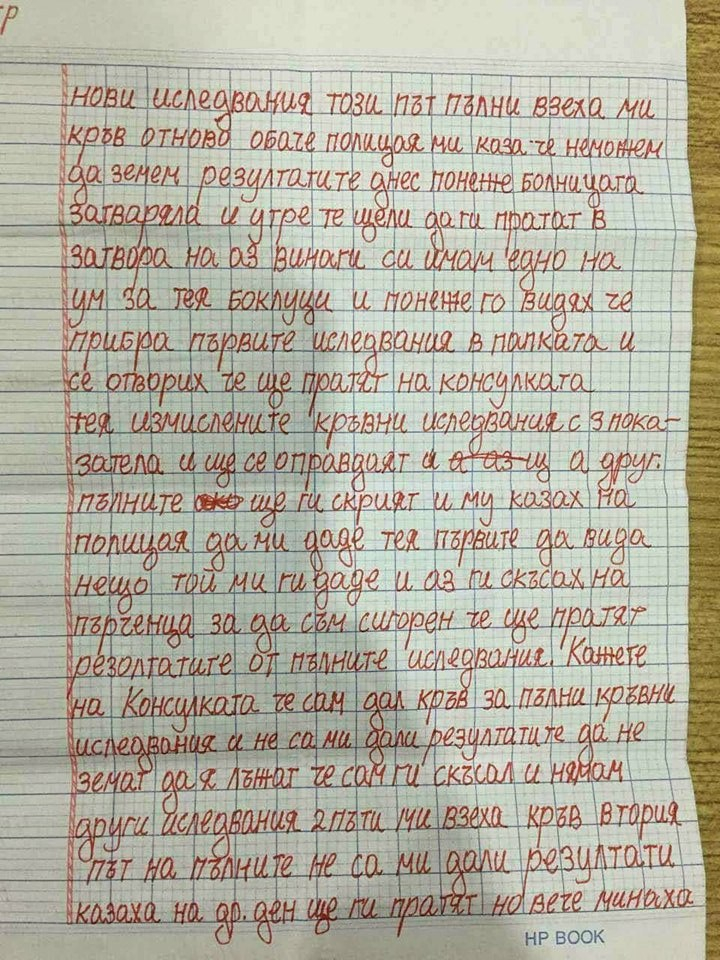 нови иследвания този път пълни взеха ми
кръв отново обаче полицая ми каза че неможем
да земем резултатите днес понеже болницата
затваряла и утре те щели да ги пратат в
затвора на аз винаги си имам едно на
ум за тея боклуци и понеже го видях че
прибра първите иследвания в папката и
се отворих че ще пратят на консулката
тея измислените кръвни иследвания с 3 пока-
зателя и ще се оправдаят и а аз щ а друг.
пълните ще ги скрият и му казах на
полицая да ми даде тея първите да вида
нещо той ми ги даде и аз ги скъсах на
пърченца за да съм сигорен че ще пратят
резолтатите от пълните иследвания. Кажете
на Консулката че сам дал кръв за пълни кръвни
иследвания и не са ми дали резултатите да не
земат да я лъжат че сам ги скъсал и нямам
други иследвания 2 пъти ми взеха кръв втория
път на пълните не са ми дали резултати
казаха на др. ден ще ги пратят но вече минаха
HP BOOK